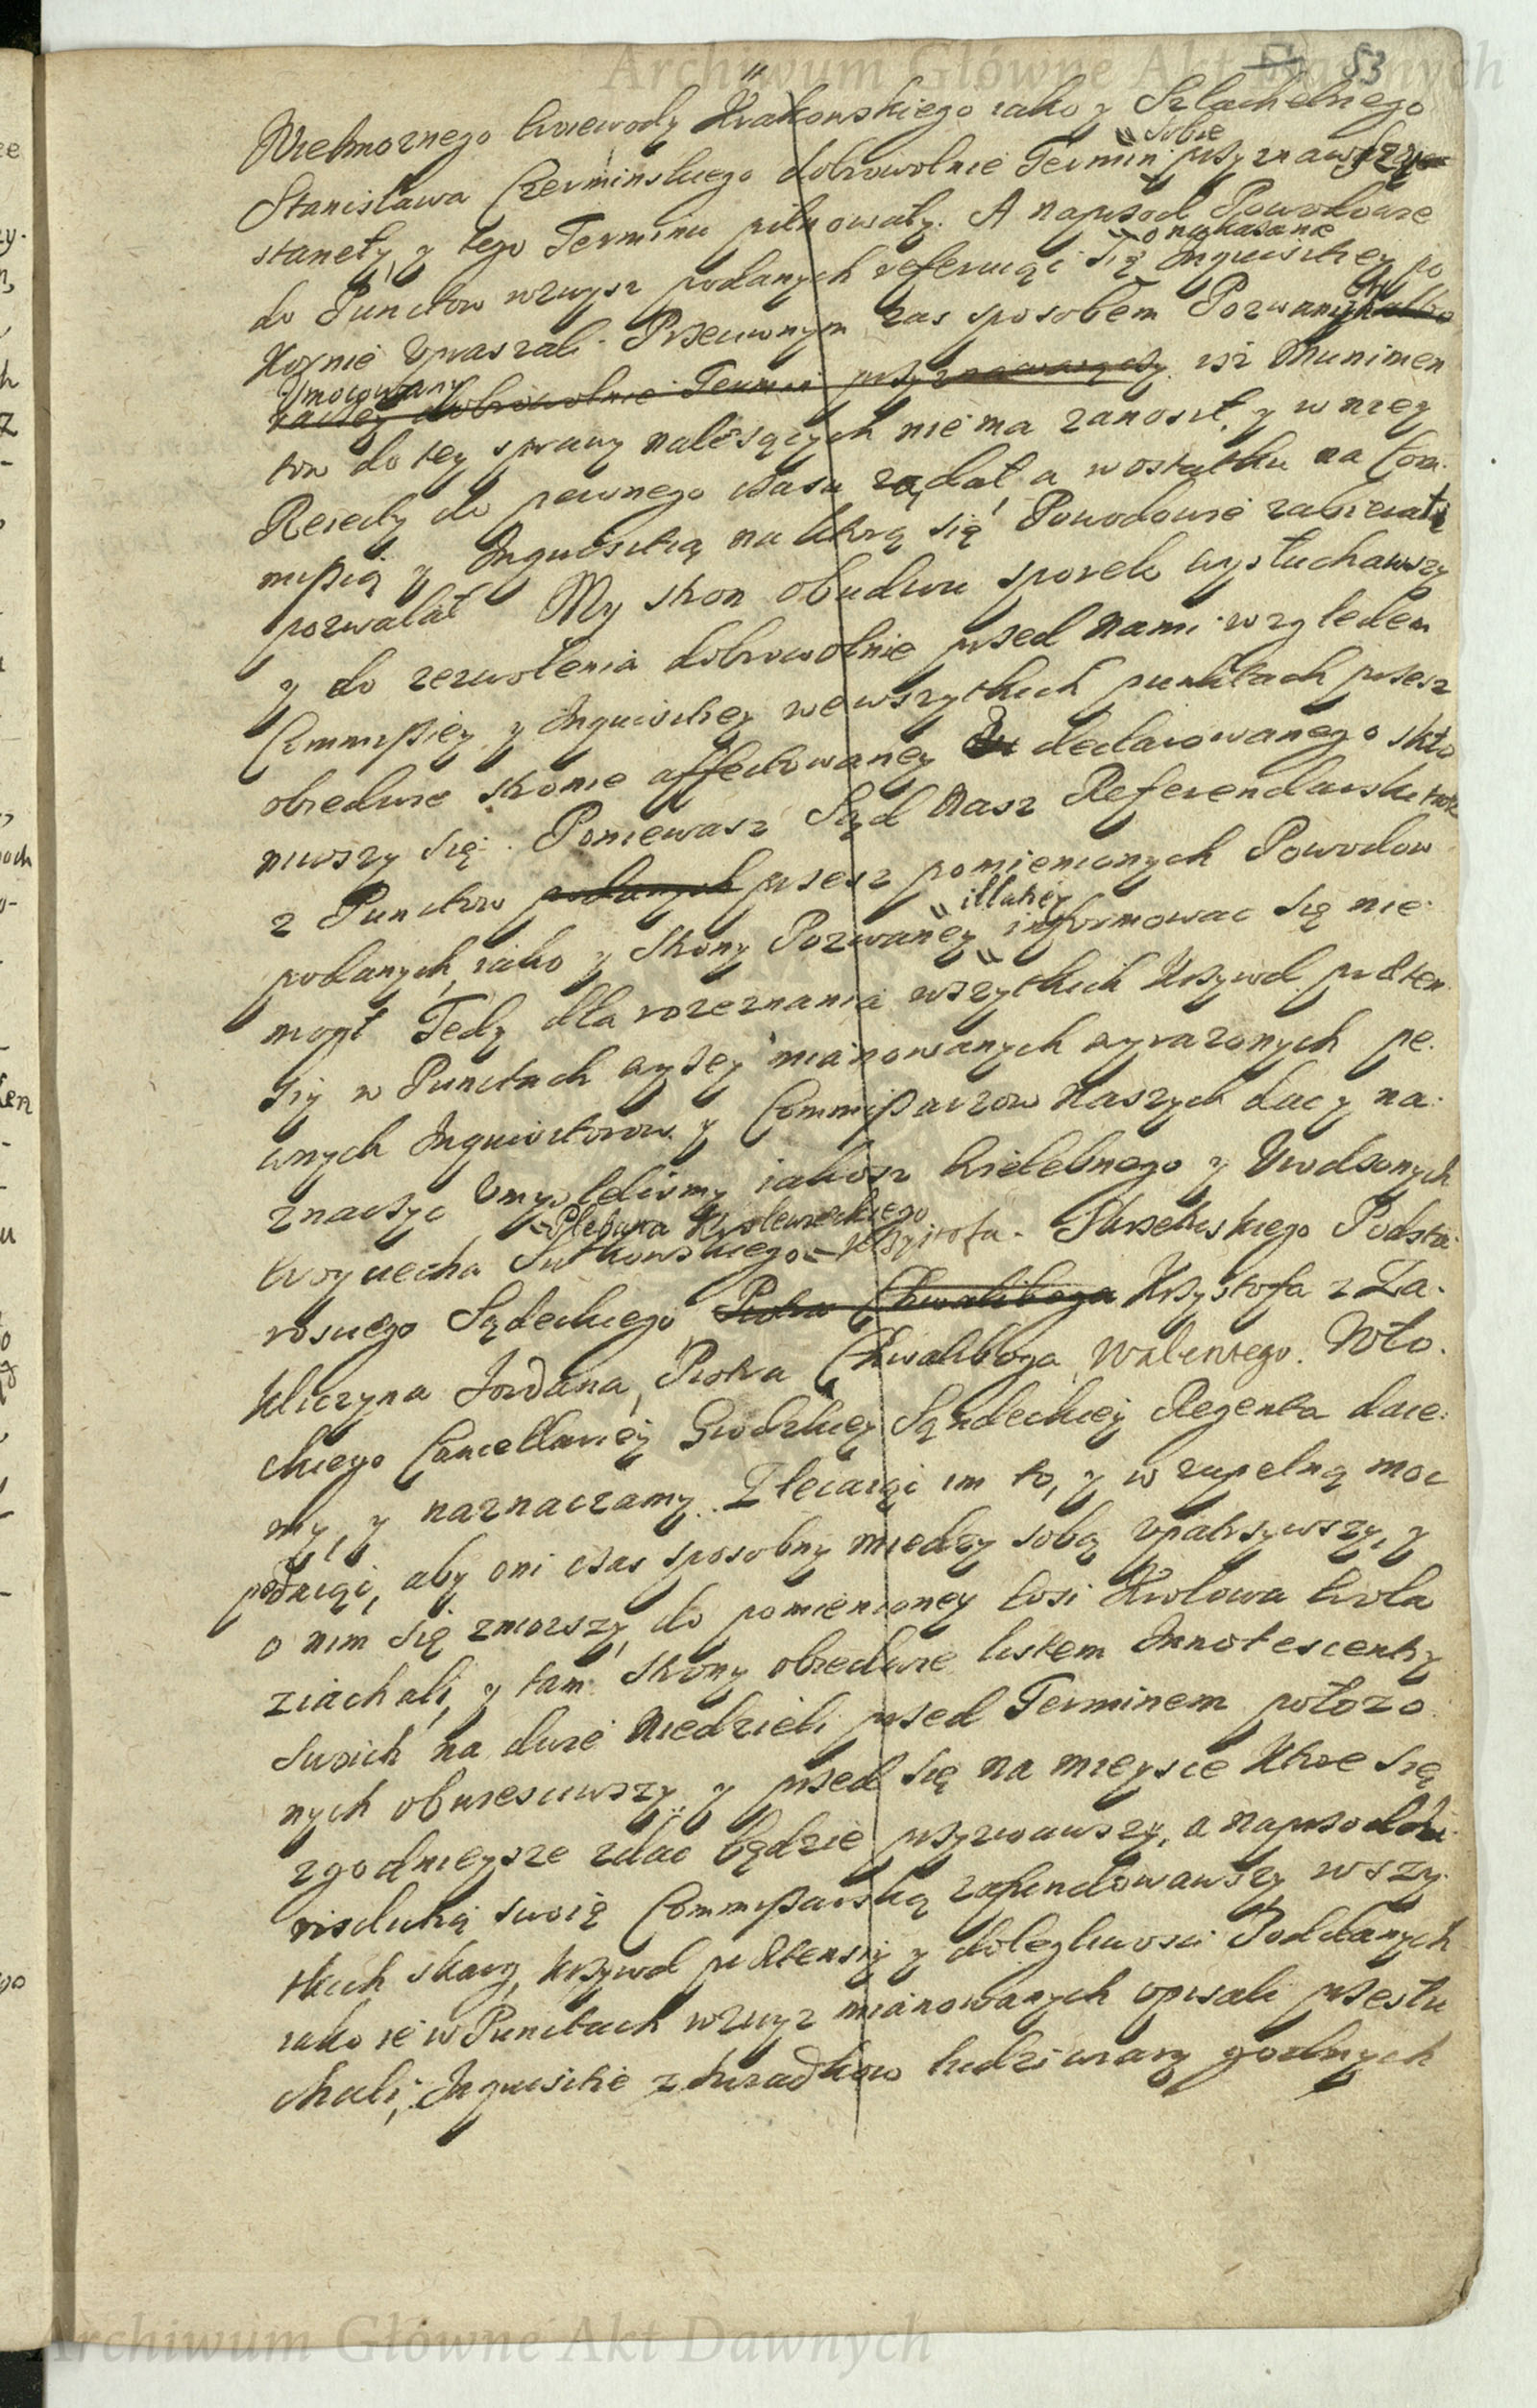 Archiwum Główne Akt Dawnych
53
Wielmoznego Woiewody Krakowskiego iako y Szlachetnego
Stanisława Czerminskiego dobrowolnie Termin sobie przyznawszy
stanęły, y tego Terminu pilnowały. A naprzod Powodowie
do Punctow wzwysz podanych referuiąc się o nakazanie Inquisitiey po
kornie upraszali. Przeciwnym zas sposobem Pozwany
Umocowany raciey dobrowolnie Termin przyznawaiący isz Munimen
tow do tey sprawy nalezących nie ma zanosił, y w niey
Reiecty do pewnego czasu ządał, a w ostatku na Com
missią y Inquisitią na ktorą się Powodowie zabierali
pozwalał My stron obudwu sporek wysłuchawszy
y do zezwolenia dobrowolnie przed nami względem
Commissiey y Inquisitiey we wszytkich punktach przesz
obiedwie stronie affectowaney declarowanego skło
niwszy się. Poniewasz Sąd Nasz Referendarski
z Punctow podanych przesz pomienionych Powodow
podanych, iako y strony Pozwaney illatiey informowac się nie
mogł Tedy dla rozeznania wszytkich Krzywd prӕten
siy w Punctach wyszey mianowanych wyrazonych pe
wnych Inquisitorow y Commissarzow Naszych dac y na
znaczyc umyslilismy iakosz Wielebnego y Urodzonych
Woyciecha Sutkowskiego Plebana Krolewskiego Krzysztofa Podsta
rosciego Sądeckiego Piotra Chwaliboga Krzysztofa z Za
kliczyna Jordana, Piotra Chwaliboga, Walentego Wło
ckiego Cancellariey Grodzkiey Sądeckiey Regenta daie
my, y naznaczamy. Zlecaiąc im to, y w zupełną moc
podaiąc, aby oni czas sposobny miedzy sobą upatrzywszy, y
o nim się zniozszy, do pomienioney wsi Krolowa Wola
ziachali, y tam strony obiedwie listem Innotescentiy
swoich na dwie Niedzieli przed Terminem położo
nych obwiesciwszy, y przed się na mieysce ktore się
zgodnieysze zdac będzie przyzwawszy, a naprzod Iu
risdictią swoię Commissarską zafundowawszy wszy
tkich skarg, krzywd prӕtensiy y dolegliwosci Poddanych
iako ie w Punctach wzwysz mianowanych opisali przesłu
chali, Inquisitie z swiadkow ludzi wiary godnych
Archiwum Główne Akt Dawnych